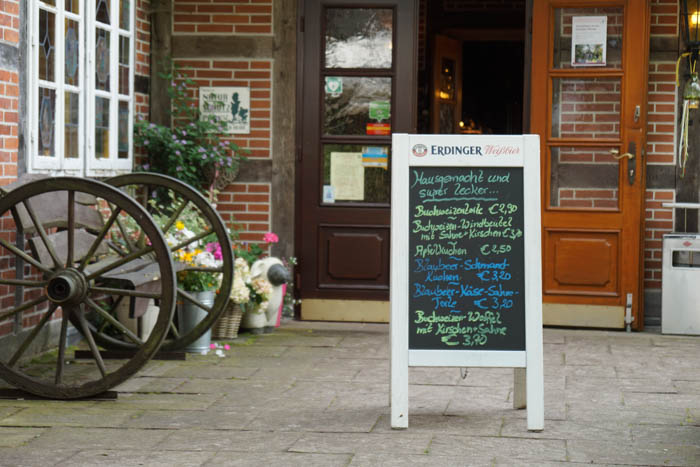 ERDINGER Weißbräu
Hausgemacht und
super lecker...
Buchweizentorte €2,90
Buchweizen-Windbeutel
mit Kirschen + Sahne € 3,70
Apfelkuchen € 2,50
Blaubeer-Schmand-
kuchen € 3,20
Blaubeer-Käse-Sahne-
Torte € 3,20
Buchweizen-Waffel
mit Kirschen + Sahne
€ 3,70